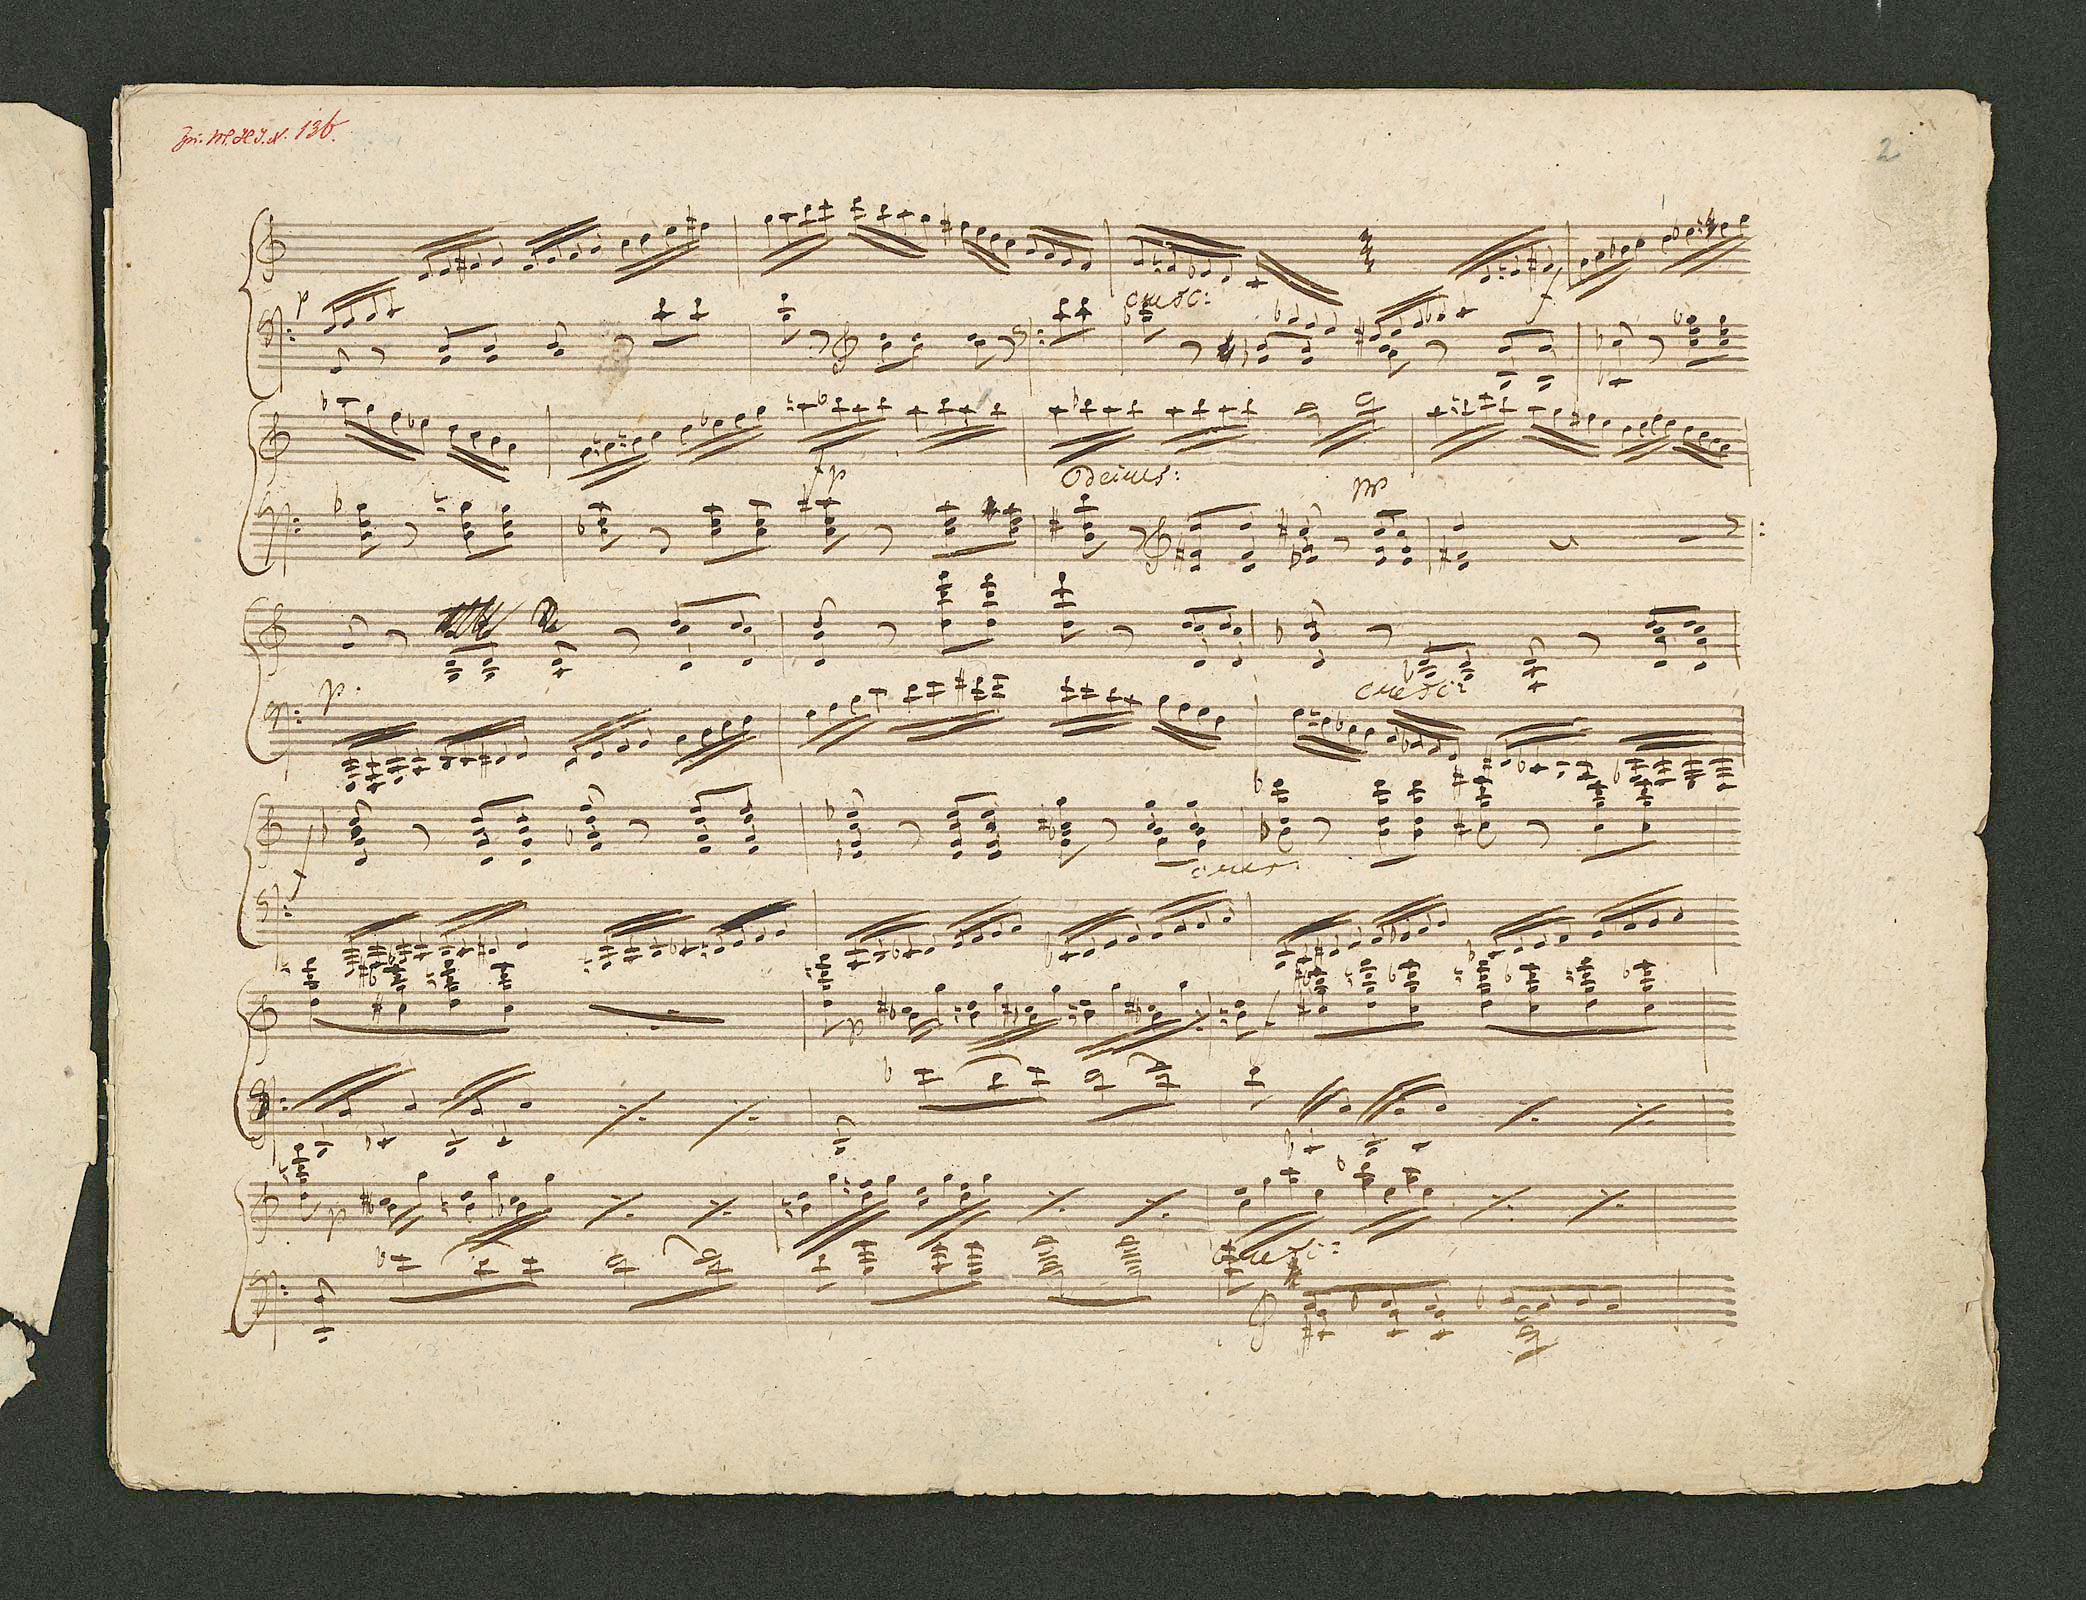 136.
2
p
cresc:
f
fp
decresc:
pp
p.
cresc:
f
cresc.
p
f
p
cresc: